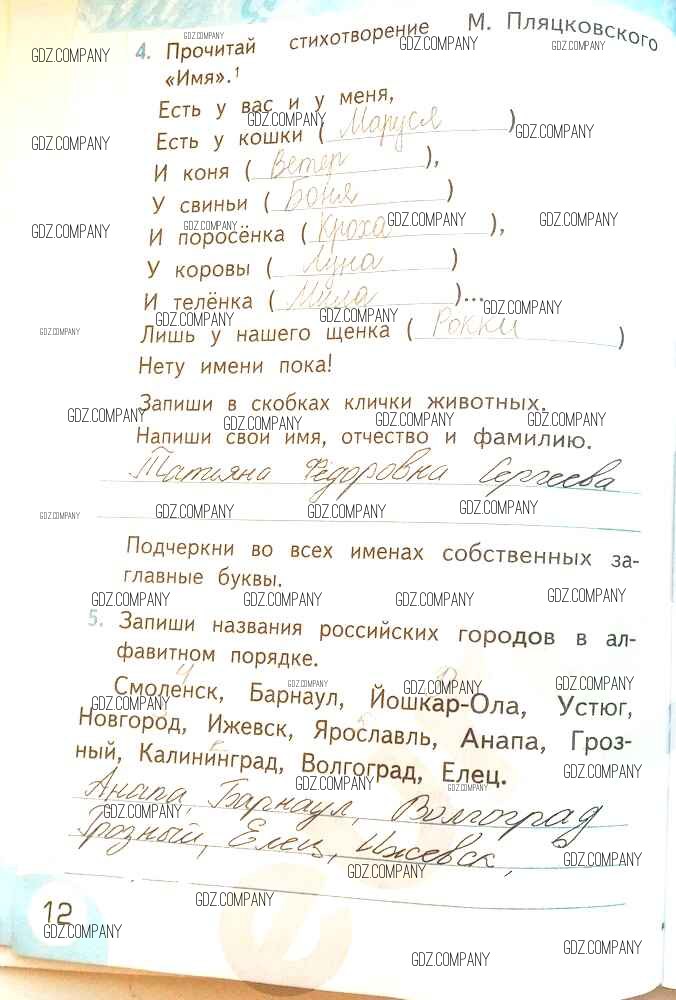 4. Прочитай стихотворение М. Пляцковского
«Имя».¹
Есть у вас и у меня,
Есть у кошки ( Маруся )
И коня ( Ветер ),
У свиньи ( Боня )
И поросёнка ( Кроха ),
У коровы ( Луна )
И телёнка ( Мила )...
Лишь у нашего щенка ( Рокки )
Нету имени пока!
Запиши в скобках клички животных.
Напиши свои имя, отчество и фамилию.
Татьяна Фёдоровна Сергеева
Подчеркни во всех именах собственных за-
главные буквы.
5. Запиши названия российских городов в ал-
фавитном порядке.
Смоленск, Барнаул, Йошкар-Ола, Устюг,
Новгород, Ижевск, Ярославль, Анапа, Гроз-
ный, Калининград, Волгоград, Елец.
Анапа, Барнаул, Волгоград
Грозный, Елец, Ижевск,
12
GDZ.COMPANY